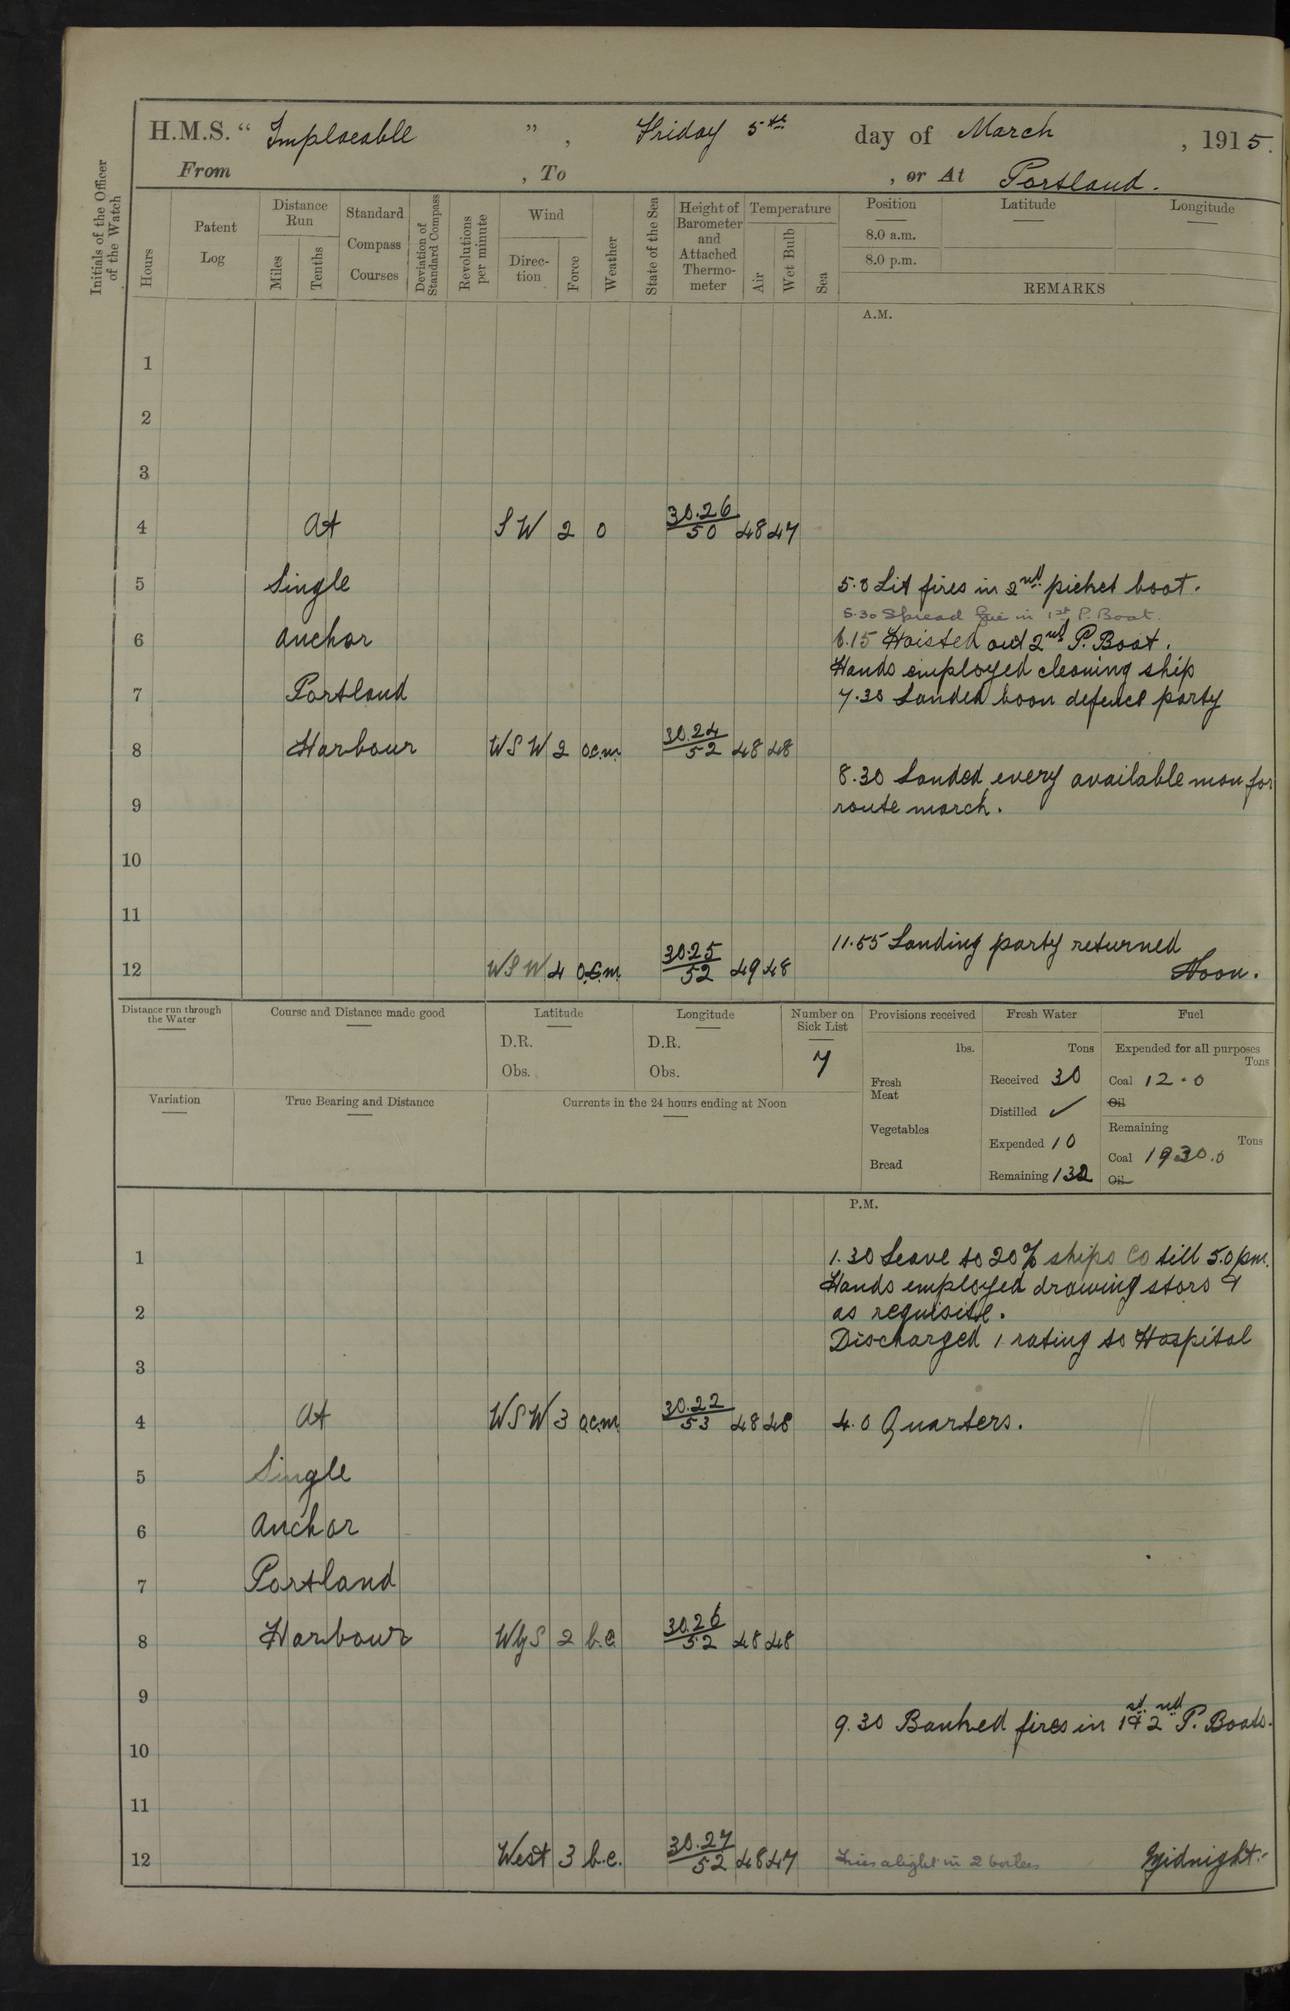 H.M.S. " Implacable " , Friday 5th day of March , 1915.
From , To , or At Portland.
Initials of the Officer of the Watch
Hours
Patent Log
Distance Run
Miles
Tenths
Standard Compass Courses
Deviation of Standard Compass
Revolutions per minute
Wind
Direc-tion
Force
Weather
State of the Sea
Height of Barometer and Attached Thermo-meter
Temperature
Air
Wet Bulb
Sea
Position
8.0 a.m.
8.0 p.m.
Latitude
Longitude
REMARKS
A.M.
1
2
3
4 At S W 2 o 30.26/50 48 47
5 Single 5.0 Lit fires in 2nd picket boat.
5.30 Spread fire in 1st P. Boat.
6 anchor 6.15 Hoisted out 2nd P. Boat.
Hands employed cleaning ship
7 Portland 7.30 Landed boom defence party
8 Harbour W S W 2 o.c.m. 30.24/52 48 48
8.30 Landed every available man for
9 route march.
10
11
11.55 Landing party returned
12 W S W 4 o.c.m. 30.25/52 49 48 Noon.
Distance run through the Water
Course and Distance made good
Latitude
D.R.
Obs.
Longitude
D.R.
Obs.
Number on Sick List
7
Provisions received
lbs.
Fresh Meat
Vegetables
Bread
Fresh Water
Tons
Received 30
Distilled ✓
Expended 10
Remaining 132
Fuel
Expended for all purposes
Tons
Coal 12.0
Oil
Remaining
Tons
Coal 1930.0
Oil
Variation
True Bearing and Distance
Currents in the 24 hours ending at Noon
P.M.
1 1.30 Leave to 20% ships Co till 5.0 pm.
Hands employed drawing stors &
2 as requisite.
Discharged 1 rating to Hospital
3
4 At W S W 3 o.c.m. 30.22/53 48 48 4.0 Quarters.
5 Single
6 Anchor
7 Portland
8 Harbour W by S 2 b.c. 30.26/52 48 48
9
9.30 Banked fires in 1st & 2nd P. Boats.
10
11
12 West 3 b.c. 30.27/52 48 47 Fires alight in 2 boilers Midnight:-